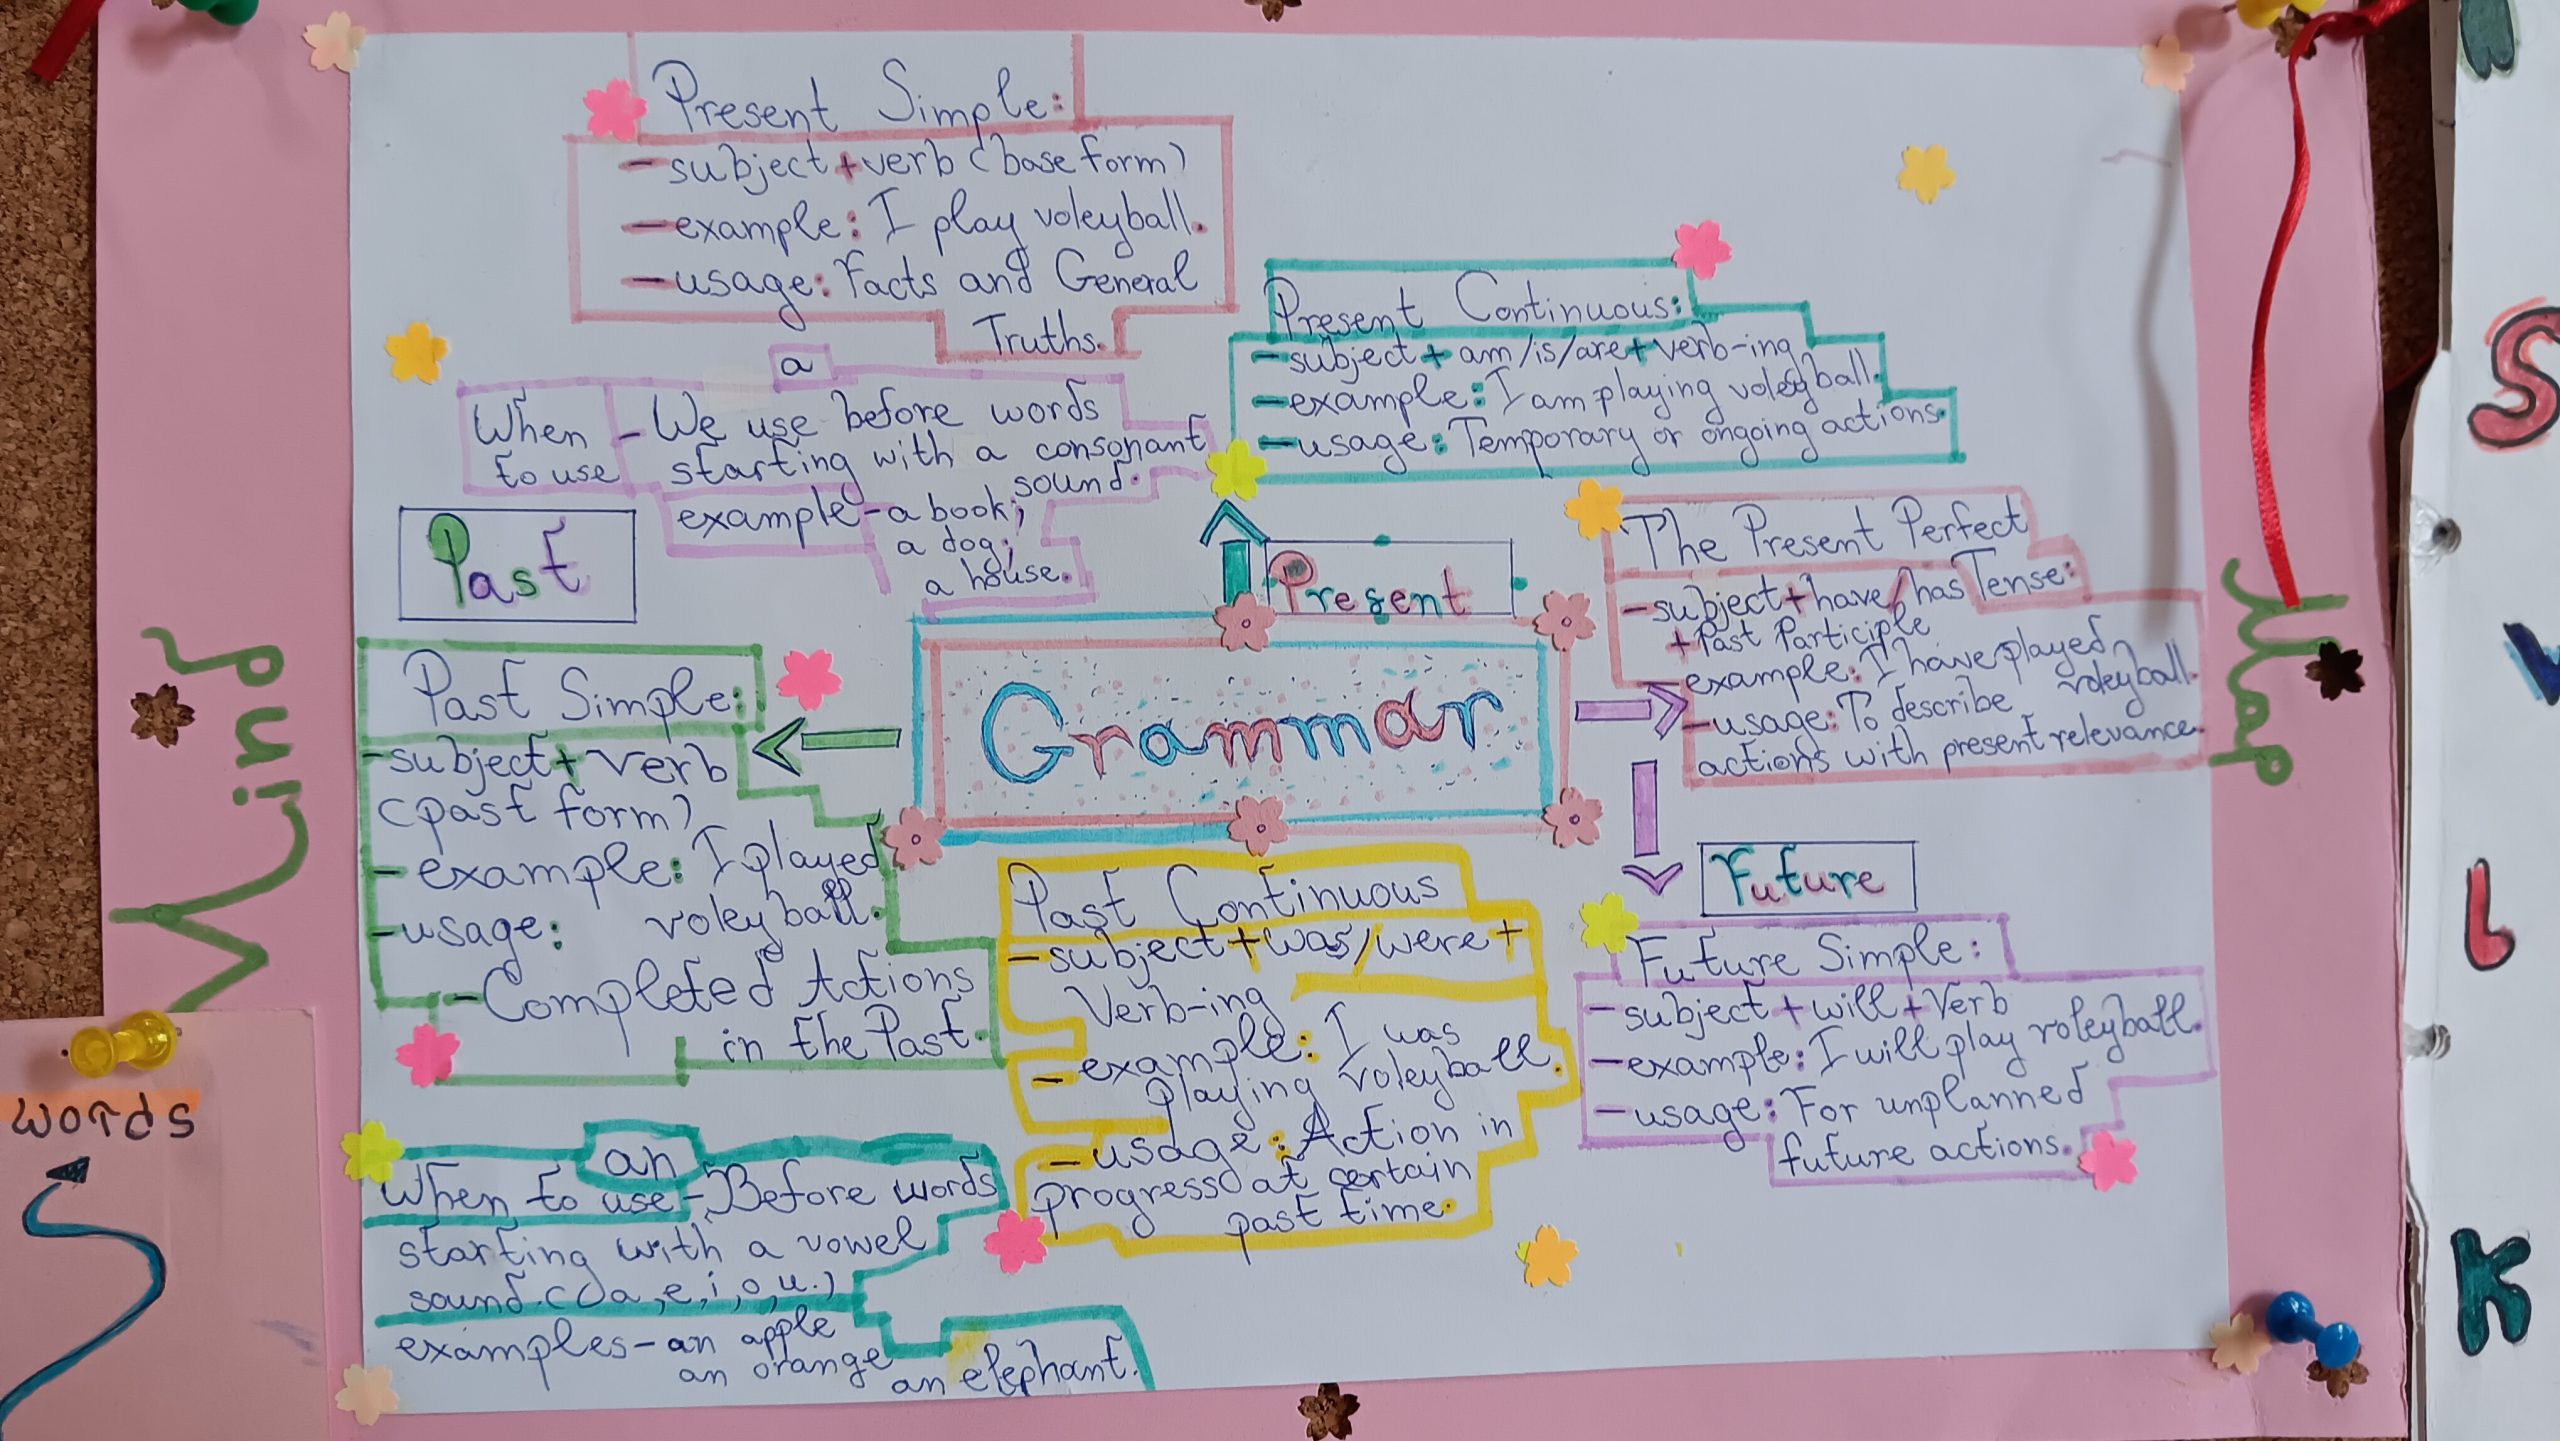 Mind
Map
Grammar
Present Simple:
- subject + verb (base form)
- example: I play voleyball.
- usage: Facts and General
Truths.
a
When
to use
- We use before words
starting with a consonant
sound.
example - a book;
a dog;
a house.
Present
Present Continuous:
- subject + am/is/are + verb-ing
- example: I am playing voleyball.
- usage: Temporary or ongoing actions.
The Present Perfect
Tense:
- subject + have/has
+ Past Participle
example: I have played
voleyball.
- usage: To describe
actions with present relevance.
Past
Past Simple:
- subject + verb
(past form)
- example: I played
voleyball.
- usage:
- Completed Actions
in the Past.
Past Continuous
- subject + was/were +
Verb-ing
- example: I was
playing voleyball.
- usage: Action in
progress at certain
past time.
Future
Future Simple:
- subject + will + Verb
- example: I will play voleyball.
- usage: For unplanned
future actions.
an
When to use - Before words
starting with a vowel
sound.
examples - an apple
an orange
an elephant.
words
S
L
K